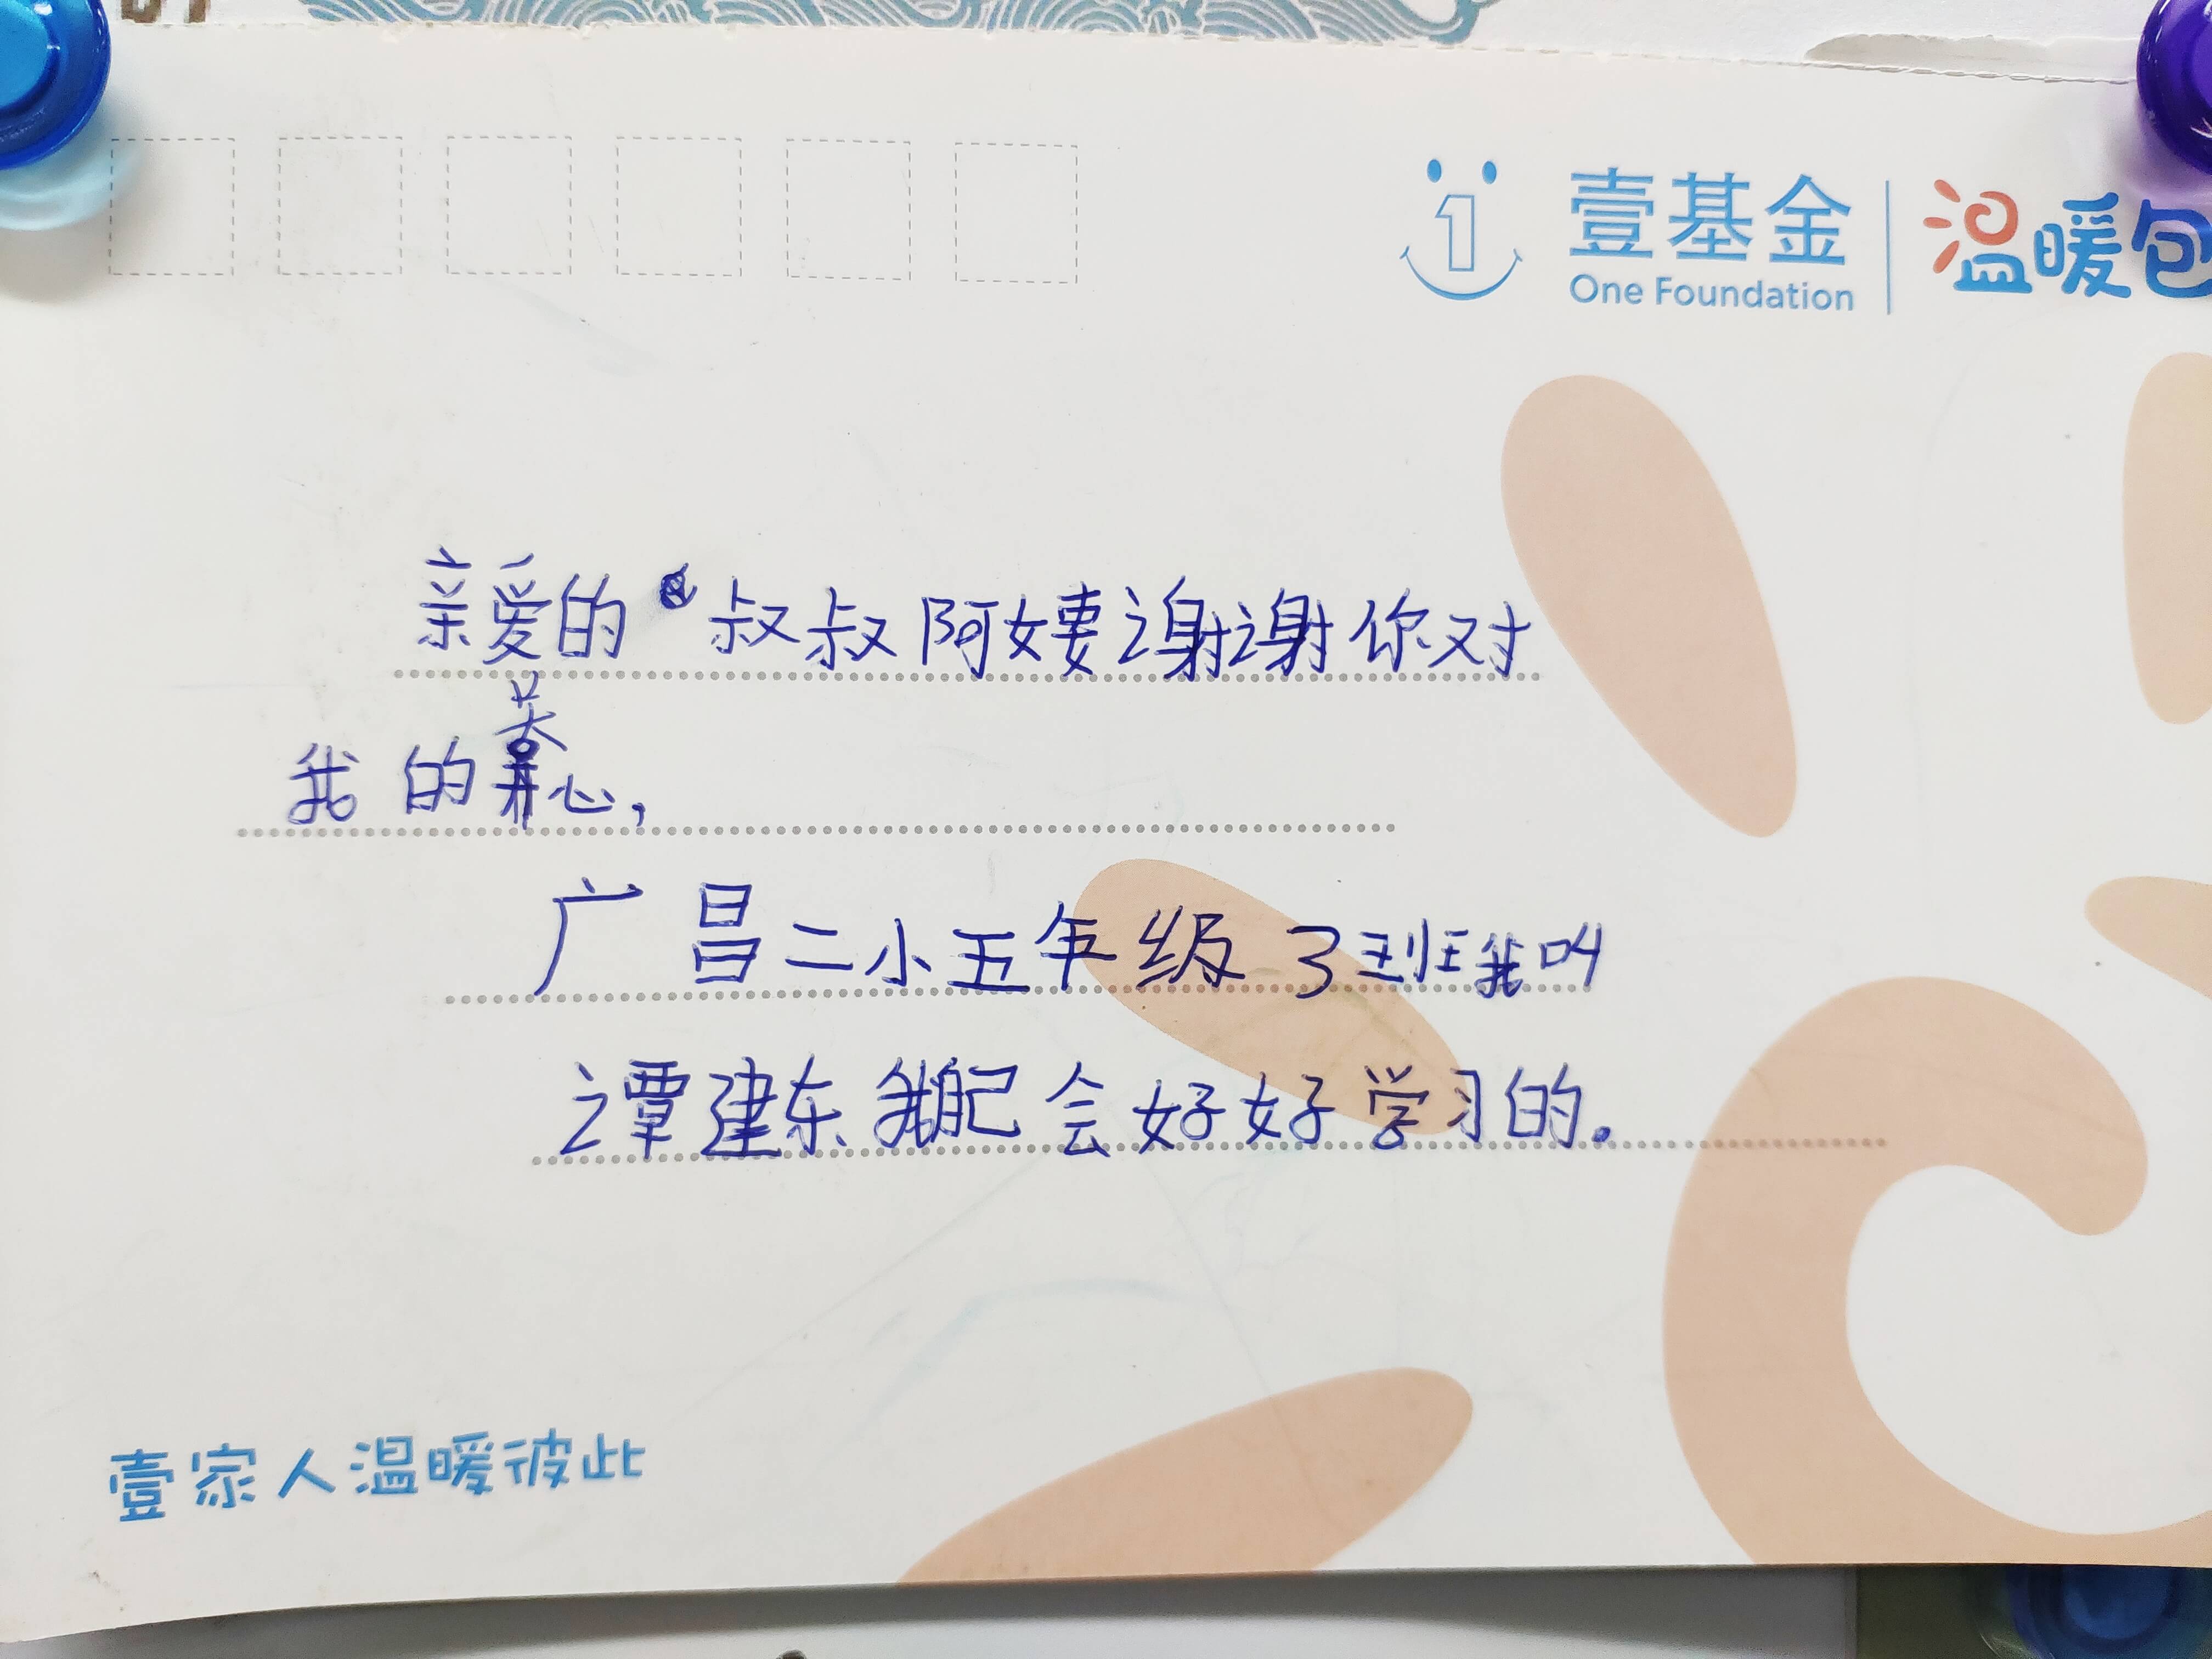 壹基金
One Foundation
温暖包
亲爱的叔叔阿姨谢谢你对
我的关心,
广昌二小五年级3班我叫
谭建东我自己会好好学习的.
壹家人温暖彼此